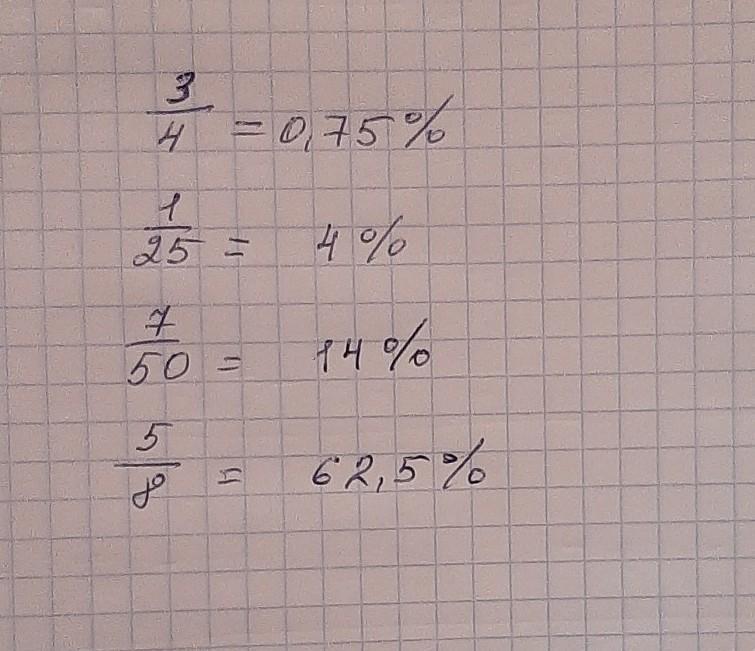 3/4 = 0,75%
1/25 = 4%
7/50 = 14%
5/8 = 62,5%